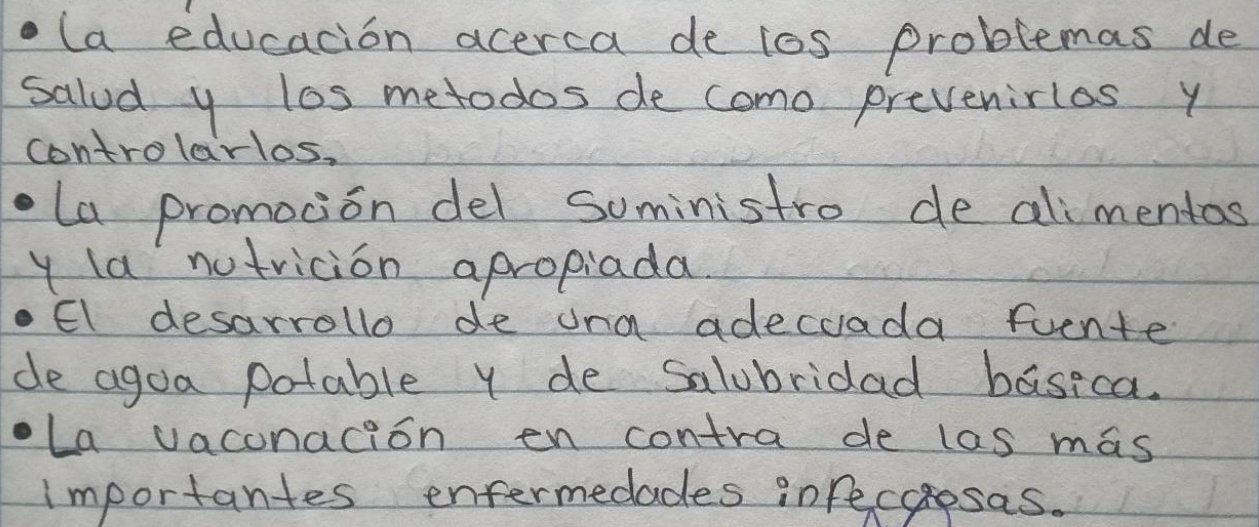 • la educación acerca de los problemas de
salud y los metodos de como prevenirlos y
controlarlos.
• la promoción del suministro de alimentos
y la nutrición apropiada.
• El desarrollo de una adecuada fuente
de agua potable y de salubridad básica.
• La vacunación en contra de las más
importantes enfermedades infecciosas.